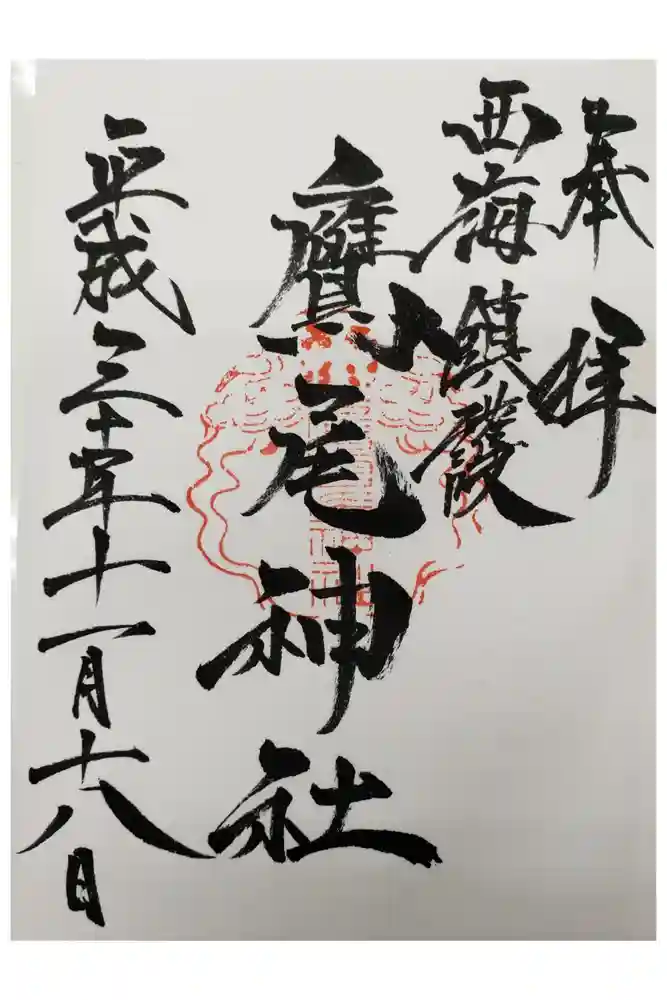 奉拝
西海鎮護
鷹尾神社
平成三十年十一月十八日